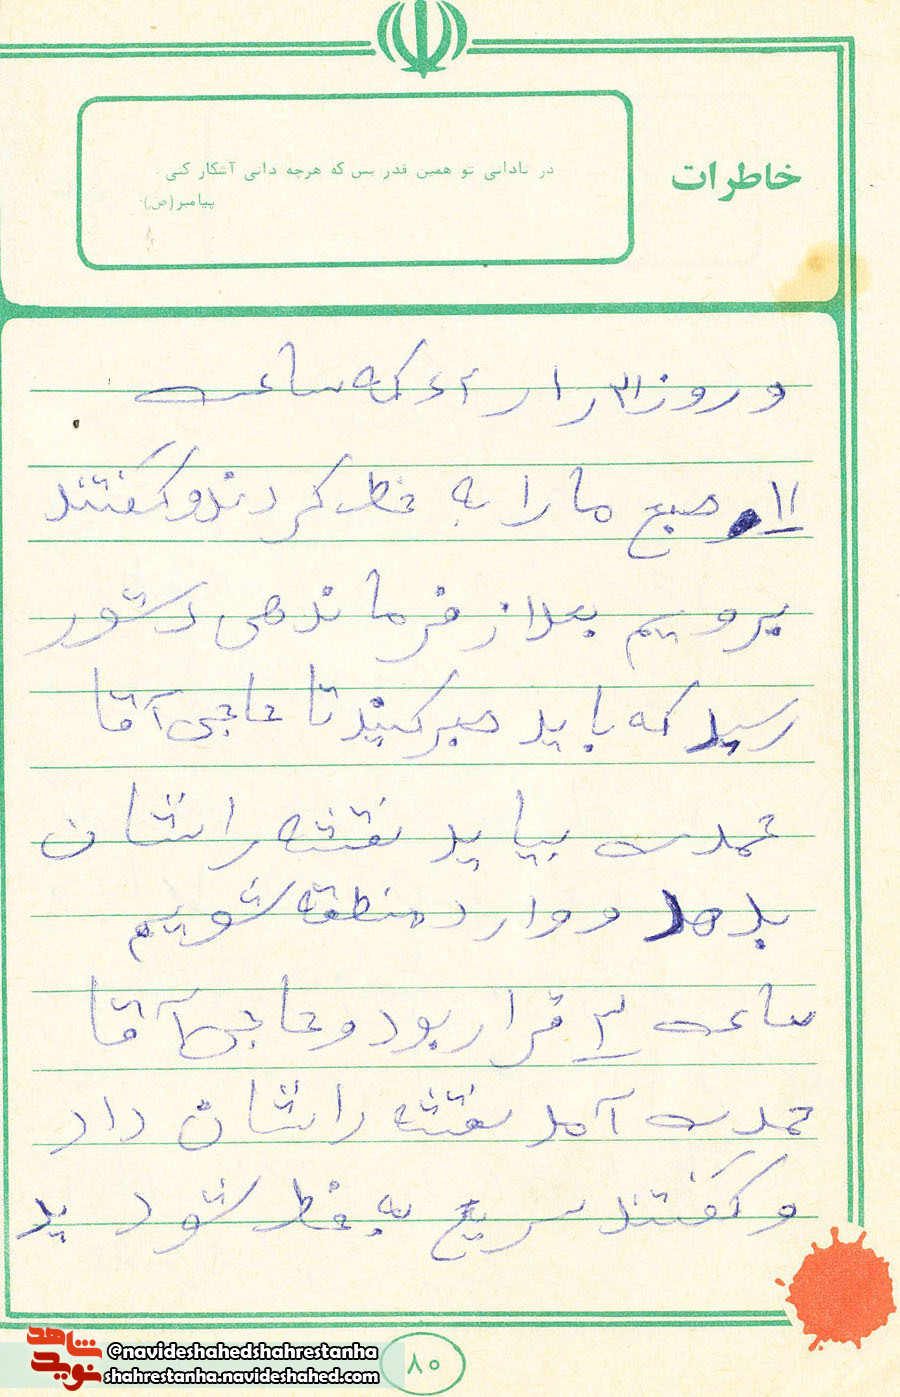 خاطرات
در نادانی تو همین قدر بس که هرچه دانی آشکار کنی.
پیامبر(ص)
و روز که ساعت
۱۱ صبح ما را به خط کردند و گفتند
برویم بعد از فرماندهی دستور
رسید که باید صبر کنید تا حاجی آقا
محمدی بیاید نقشه را نشان
بدهد و وارد منطقه شویم
ساعت ۳ قرار بود و حاجی آقا
محمدی آمد نقشه را نشان داد
و گفتند سریع به خط شوید
۸۰
شاهد
نوید
@navideshahedshahrestanha
shahrestanha.navideshahed.com